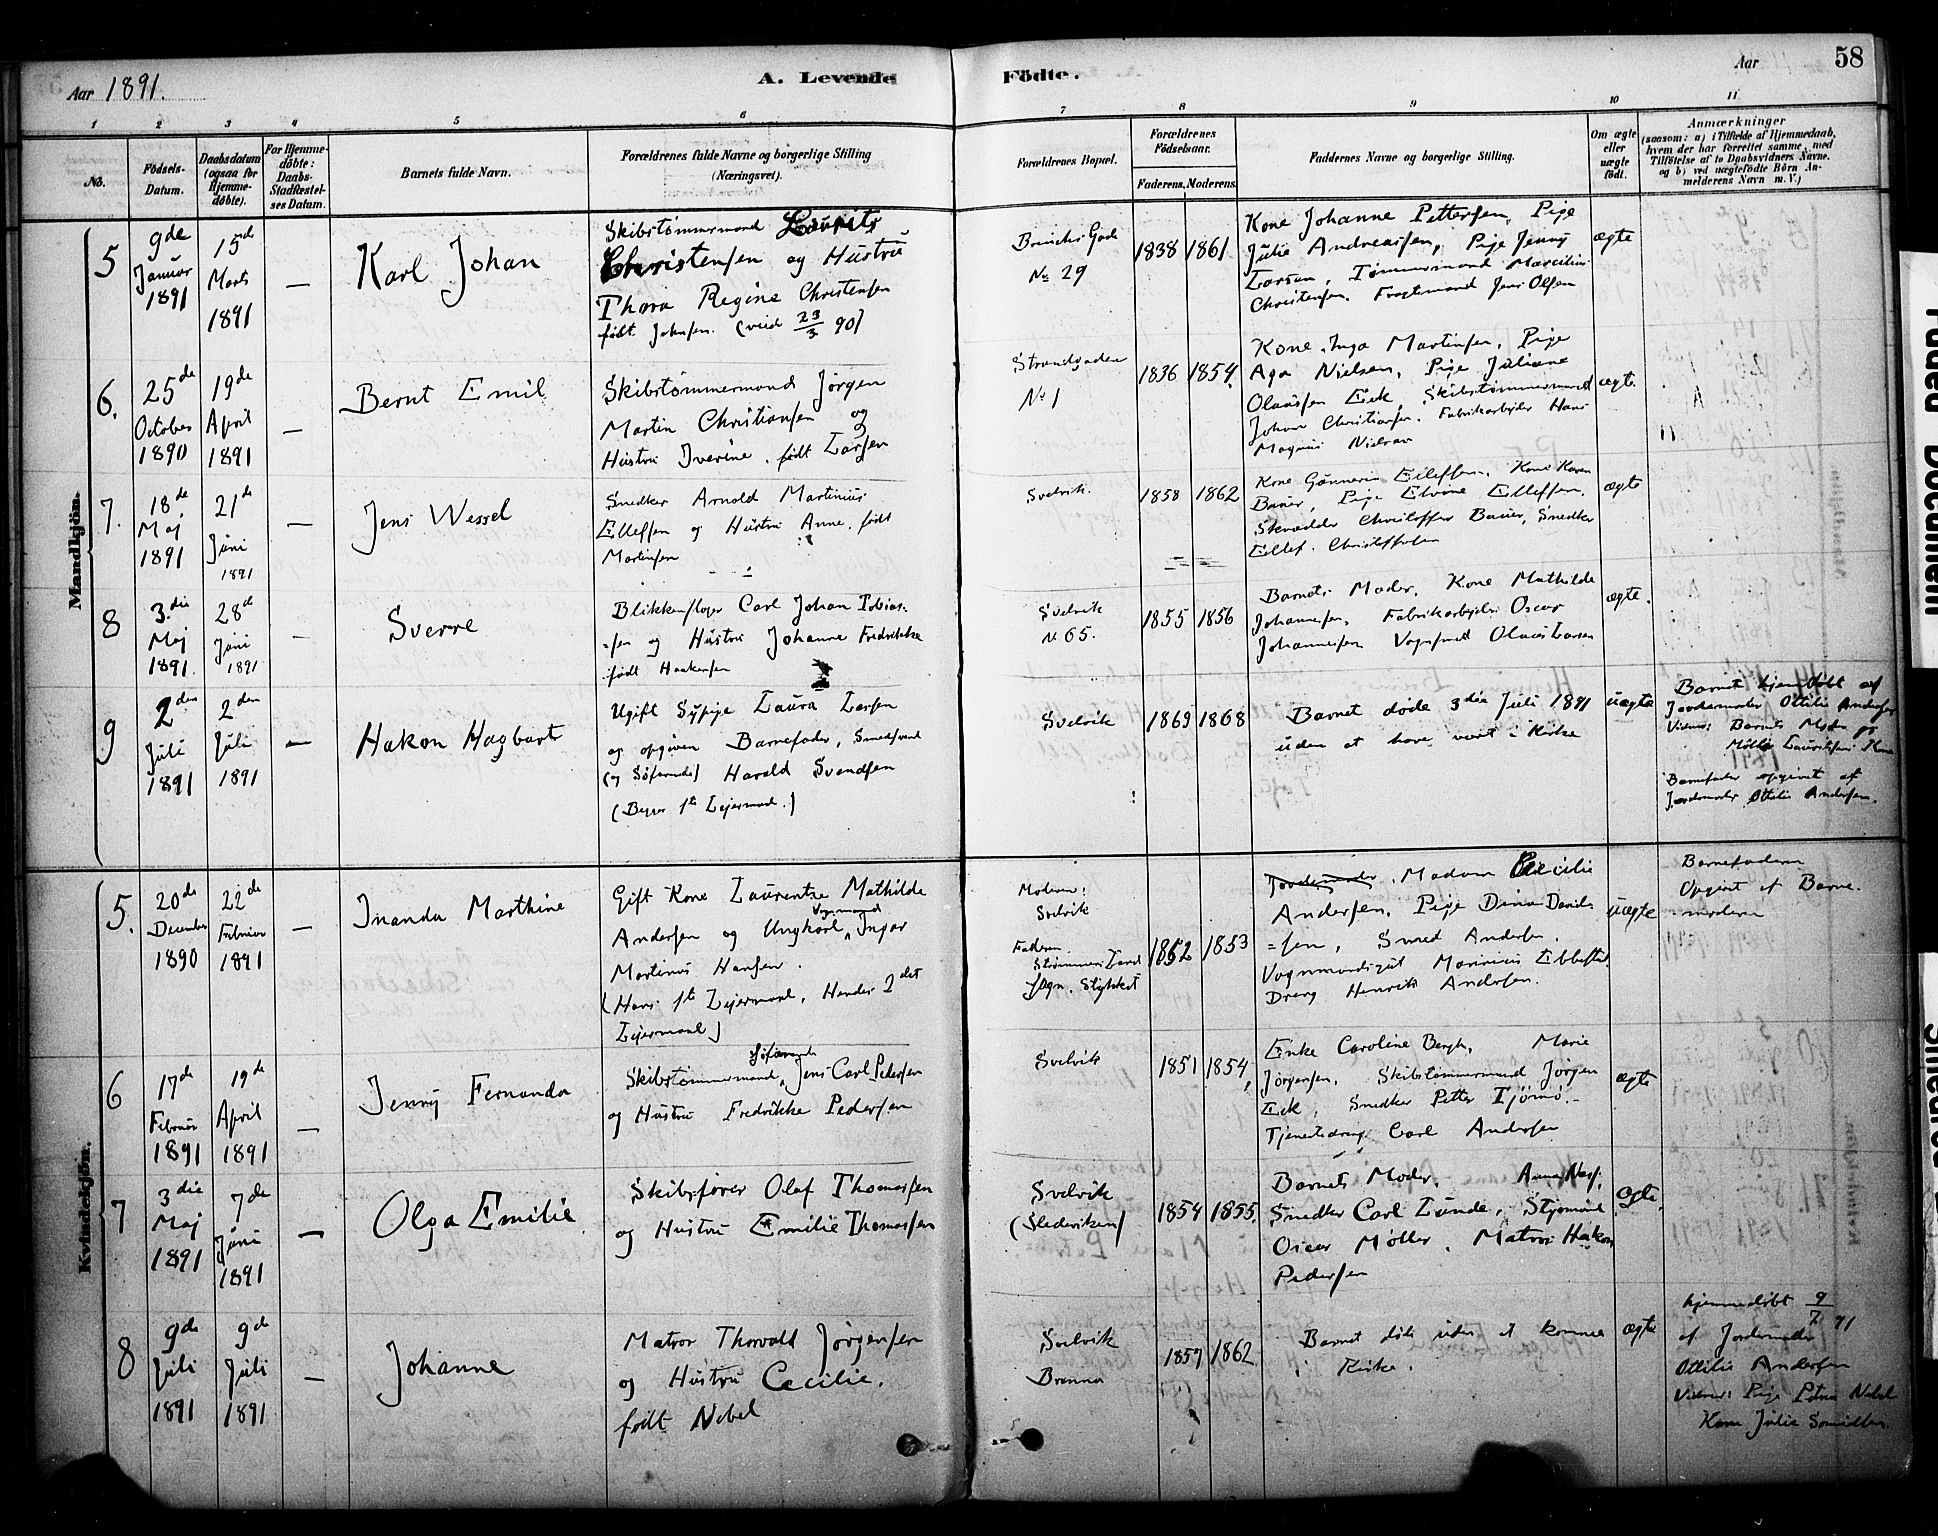 Aar 1891.
A. Levende Födte.
Aar
58
1 2 3 4 5 6 7 8 9 10 11
No.
Födsels-Datum.
Daabsdatum (ogsaa for Hjemme-döbte).
For Hjemme-döbte: Daabs-Stadfæstel-ses Datum.
Barnets fulde Navn.
Forældrenes fulde Navne og borgerlige Stilling (Næringsvei).
Forældrenes Bopæl.
Forældrenes Födselsaar.
Faderens. Moderens.
Faddernes Navne og borgerlige Stilling.
Om ægte eller uægte födt.
Anmærkninger
(saasom: a) i Tilfælde af Hjemmedaab, hvem der har forrettet samme, med Tilföielse af to Daabsvidners Navne. og b) ved uægtefödte Börn Anmelderens Navn m.V.)
Mandkjön.
5
9de Januar 1891
15de Marts 1891
—
Karl Johan
Skibstømmermand Laurits
Christensen og Hustru
Thora Regine Christensen
født Johnsen. (viid 23/3 90)
No 29
1838 1861
Kone Johanne Pettersen, Pige
Julie Andreassen, Pige Jenny
Larsen, Tømmermand Marcilius
Christensen. Fragtmand Jens Olsen
ægte
6.
25de October 1890
19de April 1891
—
Bernt Emil
Skibstømmermand Jörgen
Martin Christiansen og
Hustru Iverine, født Larsen
Strandgaden
No 1
1836 1854.
Kone Inga Martinsen, Pige
Aga Nielsen, Pige Juliane
Olausen Eek, Skibstømmermand
Johan Christiansen, Fabrikarbejder Hans
Magnus Nielsen
ægte
7.
18de Maj 1891
21de Juni 1891
—
Jens Wessel
Snedker Arnold Martinius
Ellefsen og Hustru Anne, født
Martinsen
Svelvik.
1858 1862
Kone Gunneria Ellefsen, Kone Karen
Bauer, Pige Elvine Ellefsen,
Skrædder Christoffer Bauer, Snedker
Ellef. Christoffersen
ægte
8
3.die Maj 1891
28de Juni 1891
—
Sverre
Blikkenslager Carl Johan Tobias-
-sen og Hustru Johanne Fredrikke
født Haakensen
Svelvik
No 65.
1855 1856
Barnets Moder, Kone Mathilde
Johannesen, Fabrikarbejder Oscar
Johannesen Vognmand Olaus Larsen
ægte.
9
2den Juli 1891
2den Juli 1891
—
Hakon Hagbart
Ugift Sypige Laura Larsen
og opgiven Barnefader, Smedsvend
(og Søfarende) Harald Svendsen
(Begges 1te Lejermaal.)
Svelvik
1869 1868
Barnet døde 3die Juli 1891
uden at have været i Kirke
uægte
Barnet hjemdøbt af
Jordemoder Ottilie Andersen
Vidner: Barnets Moder og
Barnefader opgivet af
Jordemoder Ottilie Andersen.
Kvindekjön.
5.
20de December 1890
22de Februar 1891
—
Inanda Marthine
Gift Kone Laurentze Mathilde
Andersen og Ungkarl, Vognmand Ingar
Martinus Hansen.
(Hans 1te Lejermaal, Hendes 2det
Lejermaal)
Moderen:
Svelvik
Faderen.
1862 1853
Jordemoder. Madam Cecilie
Andersen, Pige Dina Davids-
=sen, Smed Andersen,
Dreng Henrik Andersen.
uægte
Barnefaderen
Opgivet af Barne-
moderen
6
17de Februar 1891
19de April 1891
—
Jenny Fernanda
Skibstømmermand, Søfarende Jens Carl Pedersen
og Hustru Fredrikke Pedersen
Svelvik
1851 1854,
Enke Caroline Bergh, Marie
Jørgensen, Skibstømmermand Jørgen
Eek, Snedker Petter Tjömö.
Tjenestedreng Carl Andersen
ægte
7
3die Maj 1891
7de Juni 1891
—
Olga Emilie
Skibsfører Olaf Thomassen
og Hustru Emilie Thomassen
Svelvik
1854 1855.
Barnets Moder, Anna Næss,
Snedker Carl Lunde, Styrmand
Oscar Møller, Matros Hakon
Pedersen
ægte.
8
9de Juli 1891
9de Juli 1891
—
Johanne
Matros Thorvald Jørgensen
og Hustru Cecilie,
født Nebel
Svelvik
1859 1862
Barnet døde uden at komme
i Kirke.
ægte
hjemmedøbt 9/7 91
af Jordemoder
Ottilie Andersen
Vidner: Pige Petra Nebel
Faded Document